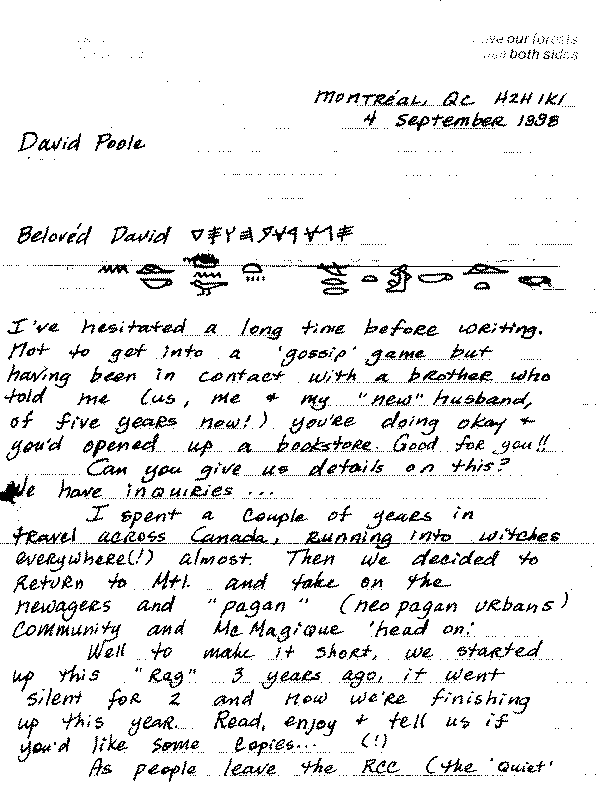 our forests
both sides
Montréal, QC H2H 1K1
4 September 1998
David Poole
Beloved David
I've hesitated a long time before writing.
Not to get into a 'gossip' game but
having been in contact with a brother who
told me (us, me + my "new" husband,
of five years now!) you're doing okay +
you'd opened up a bookstore. Good for you!!
Can you give us details on this?
We have inquiries ...
I spent a couple of years in
travel across Canada, running into witches
everywhere(!) almost. Then we decided to
return to Mtl. and take on the
newagers and "pagan" (neo pagan urbans)
community and Mc Magique 'head on.'
Well to make it short, we started
up this "Rag" 3 years ago, it went
silent for 2 and now we're finishing
up this year. Read, enjoy + tell us if
you'd like some copies... (!)
As people leave the RCC (the 'Quiet'